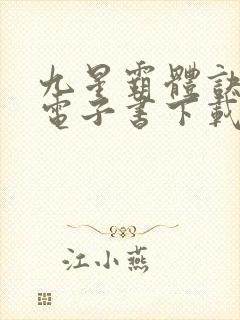 九星霸體訣
電子書下載
江小燕